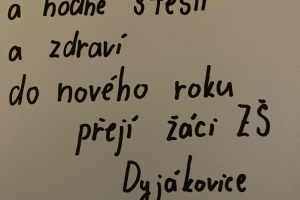 a hodně štěstí
a zdraví
do nového roku
přejí žáci ZŠ
Dyjákovice